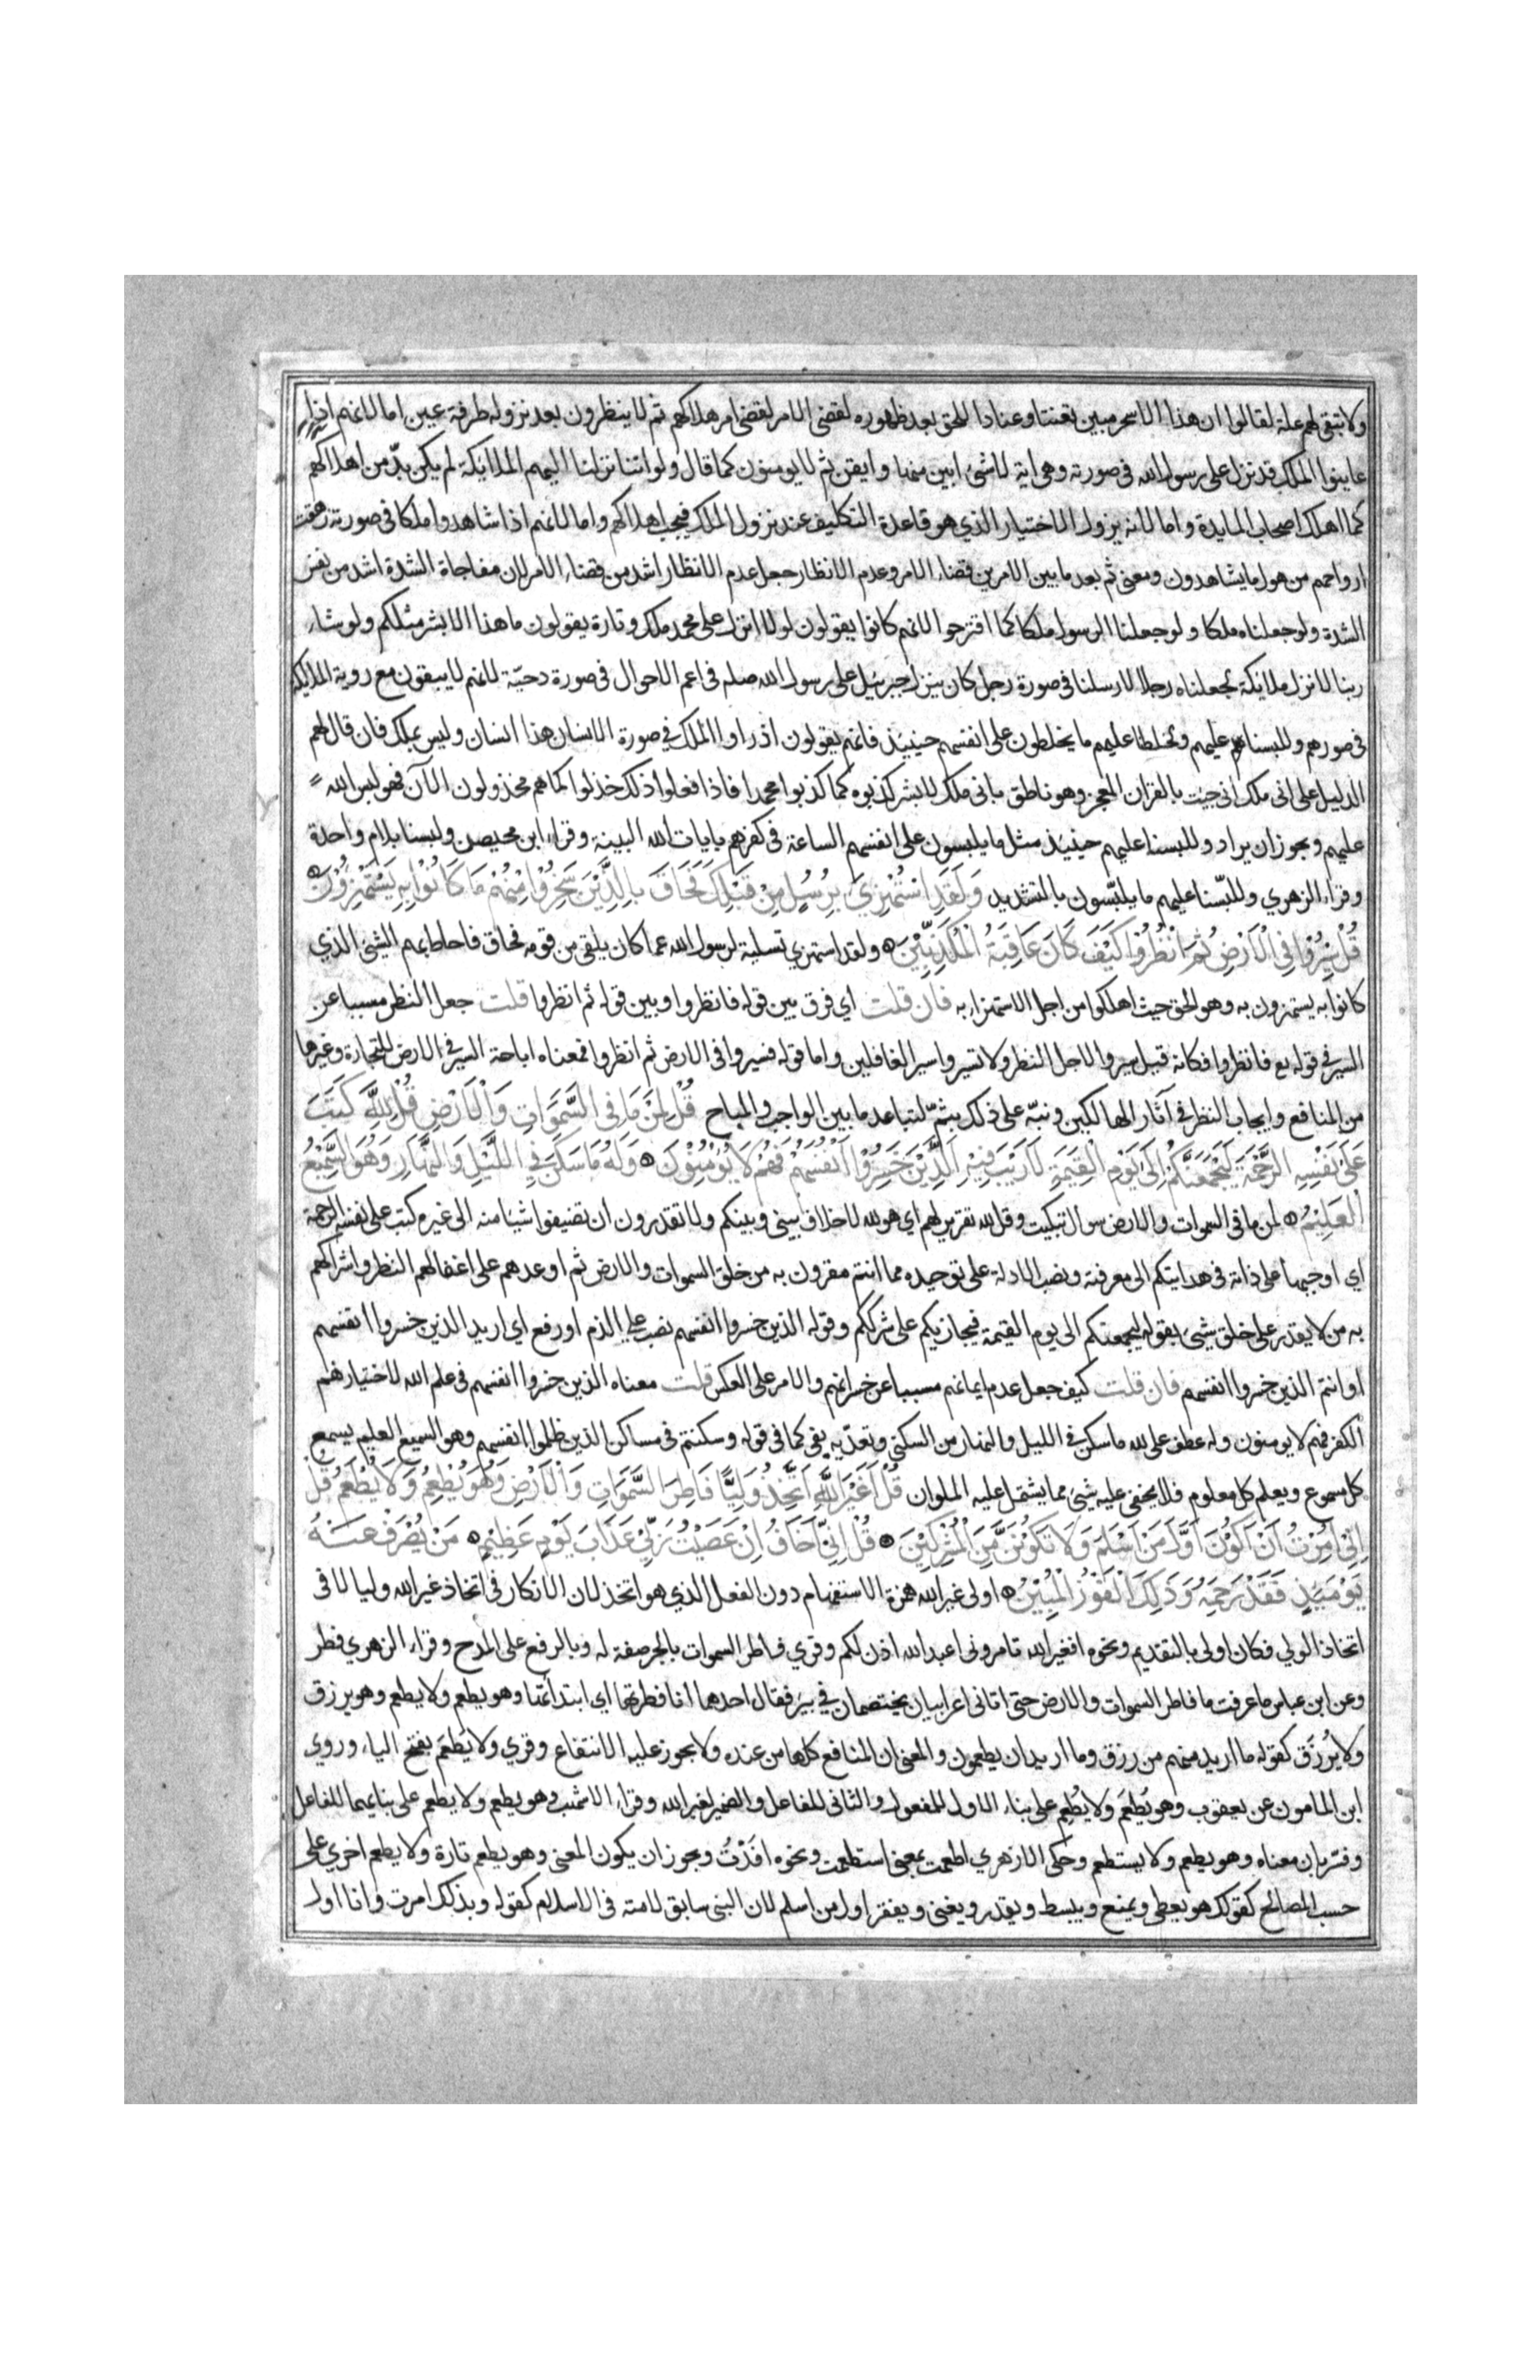 ولا تبقى لهم علة لقالوا ان هذا الا سحر مبين تعنتا وعنادا للحق بعد ظهوره لقضى الامر لقضى امر هلاكهم ثم لا ينظرون بعد نزوله طرفة عين اما لانهم اذا
عاينوا الملك قد نزل على رسول الله فى صورته وهى اية لا شئ ابين منها وايقن ثم لا يومنون كما قال ولو اننا نزلنا اليهم الملائكة لم يكن بدّ من اهلاكهم
كما اهلك اصحاب المايدة واما لانه يزول الاختيار الذي هو قاعدة التكليف عند نزول الملك فيجب اهلاكهم واما لانهم اذا شاهدوا ملكا فى صورته زهقت
ارواحهم من هول ما يشاهدون ومعنى ثم بعد ما بين الامرين قضاء الامر وعدم الانظار جعل عدم الانظار اشد من قضاء الامر لان مفاجاة الشدة اشد من نفس
الشدة ولو جعلناه ملكا ولو جعلنا الرسول ملكا كما اقترحوا لانهم كانوا يقولون لولا انزل على محمد ملك وتارة يقولون ما هذا الا بشر مثلكم ولو شاء
ربنا لانزل ملائكة لجعلناه رجلا لارسلنا فى صورة رجل كان ينزل جبرئيل على رسول الله صلم فى اعم الاحوال فى صورة دحيّة لانهم لا يبقون مع روية الملايكة
فى صورهم وللبسنا عليهم ولخلطنا عليهم ما يخلطون على انفسهم حينيئذ فانهم يقولون اذ راوا الملك في صورة الانسان هذا انسان وليس بملك فان قال لهم
الدليل على انى ملك انى جيت بالقران المعجز وهو ناطق بانى ملك لا بشر كذبوه كما كذبوا محمدا فاذا فعلوا ذلك خذلوا كما هم مخذولون الآن فهو لبس الله
عليهم ويجوز ان يراد وللبسنا عليهم حينيئذ مثل ما يلبسون على انفسهم الساعة فى كفرهم بايات الله البينة وقراء ابن محيصن ولبسنا بلام واحدة
وقراء الزهري وللبّسنا عليهم ما يلبّسون بالتشديد وَلَقَدِ اسْتُهْزِئَ بِرُسُلٍ مِنْ قَبْلِكَ فَحَاقَ بِالَّذِيْنَ سَخِرُوْا مِنْهُمْ مَا كَانُوْا بِهِ يَسْتَهْزِؤُنَ
قُلْ سِيْرُوْا فِى الْاَرْضِ ثُمَّ انْظُرُوْا كَيْفَ كَانَ عَاقِبَةُ الْمُكَذِّبِيْنَ ولقد استهزي تسلية لرسول الله عما كان يلقى من قومه فحاق فاحاط بهم الشئ الذي
كانوا به يستهزون به وهو الحق حيث اهلكوا من اجل الاستهزاء به فان قلت اي فرق بين قوله فانظروا وبين قوله ثم انظروا قلت جعل النظر مسببا عن
السير في قوله تع فانظروا فكانه قيل سيروا لاجل النظر ولا تسيروا سير الغافلين واما قوله فسيروا فى الارض ثم انظروا فمعناه اباحة السير في الارض للتجارة وغيرها
من المنافع وايجاب النظر فى آثار الهالكين ونبّه على ذلك بثمّ لتباعد ما بين الواجب والمباح قُلْ لِمَنْ مَا فِى السَّمٰوَاتِ وَالْاَرْضِ قُلْ لِلّٰهِ كَتَبَ
عَلَى نَفْسِهِ الرَّحْمَةَ لَيَجْمَعَنَّكُمْ اِلَى يَوْمِ الْقِيٰمَةِ لَا رَيْبَ فِيْهِ الَّذِيْنَ خَسِرُوْا اَنْفُسَهُمْ فَهُمْ لَا يُؤْمِنُوْنَ وَلَهُ مَا سَكَنَ فِى اللَّيْلِ وَالنَّهَارِ وَهُوَ السَّمِيْعُ
الْعَلِيْمُ لمن ما فى السموات والارض سوال تبكيت وقل لله تقرير لهم اي هو لله لا خلاف بينى وبينكم ولا تقدرون ان تضيفوا شيا منه الى غيره كتب على نفسه الرحمة
اي اوجبها على ذاته فى هدايتكم الى معرفته ونصب الادلة على توحيده مما انتم مقرون به من خلق السموات والارض ثم اوعدهم على اغفالهم النظر واشراكهم
به من لا يقدر على خلق شئ بقوله ليجمعنكم الى يوم القيمة فيجازيكم على شرككم وقوله الذين خسروا انفسهم نصب على الذم او رفع اي اريد الذين خسروا انفسهم
او انتم الذين خسروا انفسهم فان قلت كيف جعل عدم ايمانهم مسببا عن خسرانهم والامر على العكس قلت معناه الذين خسروا انفسهم فى علم الله لاختيارهم
الكفر فهم لا يومنون وله عطف على لله ما سكن في الليل والنهار من السكنى وتعدّيه بفى كما فى قوله وسكنتم فى مساكن الذين ظلموا انفسهم وهو السميع العليم يسمع
كل مسموع ويعلم كل معلوم فلا يخفى عليه شئ مما يشتمل عليه الملوان قُلْ اَغَيْرَ اللّٰهِ اَتَّخِذُ وَلِيًّا فَاطِرِ السَّمٰوَاتِ وَالْاَرْضِ وَهُوَ يُطْعِمُ وَلَا يُطْعَمُ قُلْ
اِنِّى اُمِرْتُ اَنْ اَكُوْنَ اَوَّلَ مَنْ اَسْلَمَ وَلَا تَكُوْنَنَّ مِنَ الْمُشْرِكِيْنَ قُلْ اِنِّى اَخَافُ اِنْ عَصَيْتُ رَبِّيْ عَذَابَ يَوْمٍ عَظِيْمٍ مَنْ يُصْرَفْ عَنْهُ
يَوْمَئِذٍ فَقَدْ رَحِمَهُ وَذَلِكَ الْفَوْزُ الْمُبِيْنُ اولى غير الله همزة الاستفهام دون الفعل الذي هو اتخذ لان الانكار فى اتخاذ غير الله وليا لا فى
اتخاذ الولي فكان اولى بالتقديم ونحوه افغير الله تامرونى اعبد الله اذن لكم وقري فاطر السموات بالجر صفة له وبالرفع على المدح وقراء الزهري فطر
وعن ابن عباس ما عرفت ما فاطر السموات والارض حتى اتانى اعرابيان يختصمان في بئر فقال احدهما انا فطرتها اي ابتداتها وهو يطعم ولا يطعم وهو يرزق
ولا يُرزَق كقوله ما اريد منهم من رزق وما اريد ان يطعمون والمعنى ان المنافع كلها من عنده ولا يجوز عليه الانتفاع وقري ولا يَطْعَم بفتح الياء وروي
ابن المامون عن يعقوب وهو يُطعَم ولا يُطعِم على بناء الاول للمفعول والثانى للفاعل والضمير لغير الله وقراء الاشهب وهو يطعم ولا يطعم على بنائهما للفاعل
وفسّر بان معناه وهو يطعم ولا يستطعم وحكى الازهري اطعمت بمعنى استطعمت ونحوه افَدْتُ ويجوز ان يكون المعنى وهو يطعم تارة ولا يطعم اخري على
حسب المصالح كقولك هو يعطى ويمنع ويبسط ويقدر ويغنى ويفقر اول من اسلم لان النبى سابق لامته فى الاسلام كقوله وبذلك امرت وانا اول